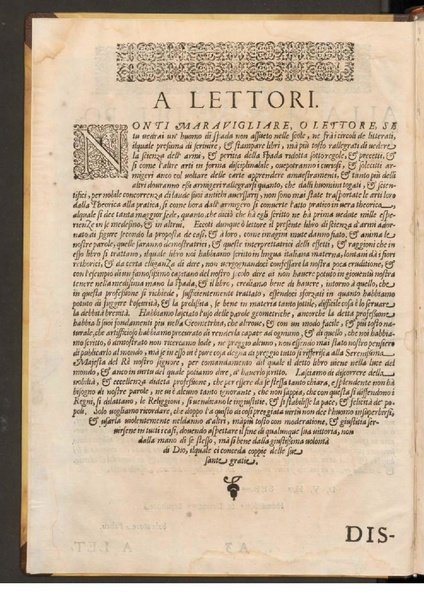 A LETTORI.
NON TI MARAVIGLIARE, O LETTORE, SE
tu vedrai un' huomo di spada non assueto nelle scole, ne frà i circoli de litterati,
il quale presuma di scrivere, & stampare libri, mà più tosto rallegrati di vedere
la scienza dell' armi, & pertica della spada ridotta sotto regole, & precetti, &
si come l'altre arti in forma disciplinabile, ove potranno i curiosi, & soleciti ar-
migeri anco col voltare delle carte apprendere amaestramenti, & tanto più delli
altri dovranno essi armigeri rallegrarsi quanto, che dalli huomini togati, & scien-
tifici, per nobile concorrenza di laude suoi antichi aversarii, non sono mai state trasportate le arti loro
dalla Theorica alla pratica, si come hora dall' armigero si converte l'atto pratico in vera theorica,
al quale si dee tanta maggior fede, quanto che ciò che hà egli scritto ne hà prima vedute mille espe-
rienze in se medesimo, & in altrui. Eccoti dunque ò lettore il presente libro di scienza d'armi ador-
nato di figure secondo la proposta de casi, & à loro, come imagini mute danno fiato, & anima le
nostre parole, quelle saranno demostratrici, & queste interpretatrici delli effetti, & raggioni che in
esso libro si trattano, il quale libro noi habbiamo scritto in lingua italiana materna, lontani da i fiori
rethorici, & da certa eleganza di dire, non vergognandoci confessare la nostra poca eruditione, &
con l'esempio di un famosissimo capitano del nostro secolo dire di non havere potuto in gioventù nostra
tenere nella medesima mano la spada, & il libro, crediamo bene di havere, intorno à quello, che
in questa professione si richiede, sufficientemente trattato, essendoci sforzati in quanto habbiamo
potuto di fuggire l'oscurità, & la prolissità, se bene in materia tanto sotile, difficile cosa è l'osservare
la debbita brevità. Habbiamo lasciato l'uso delle parole geometriche, ancorche la detta professione
habbia li suoi fondamenti più nella Geometria, che altrove, & con un modo facile, & più tosto na-
turale, che artificioso habbiamo procurato di renderla capace ad ognuno, & di quello, che noi habbia-
mo scritto, ò dimostrato non ricercamo lode, ne preggio alcuno, non essendo mai stato nostro pensiero
di publicarlo al mondo, mà se in esso vi è pure cosa degna di preggio tutto si rifferisca alla Serenissima
Majestà del Rè nostro signore, per comandamento del quale il detto libro viene nella luce del
mondo, & anco in virtù del quale potiamo dire, d' haverlo scritto. Lasciamo di discorrere della
nobiltà, & eccellenza di detta professione, che per essere da se stessa tanto chiara, e splendente non hà
bisogno di nostre parole, ne vi è alcuno tanto ignorante, che non sappia, che con questa si diffendono i
Regni, si dilattano, le Religioni, si vendicano le ingiustitie, & si stabilisse la pace, & felicità de po-
poli. Solo vogliamo ricordare, che doppo l'acquisto di così preggiata virtù non dee l' huomo insuperbirsi,
& usarla violentemente ne danni d'altri, mà più tosto con moderatione, & giustitia ser-
virsene in tutti i casi, dovendo aspettare il fine di qualunque sua vittoria, non
dalla mano di se stesso, mà si bene dalla giustissima volontà
di Dio, il quale ci conceda coppia delle sue
sante gratie.
DIS-